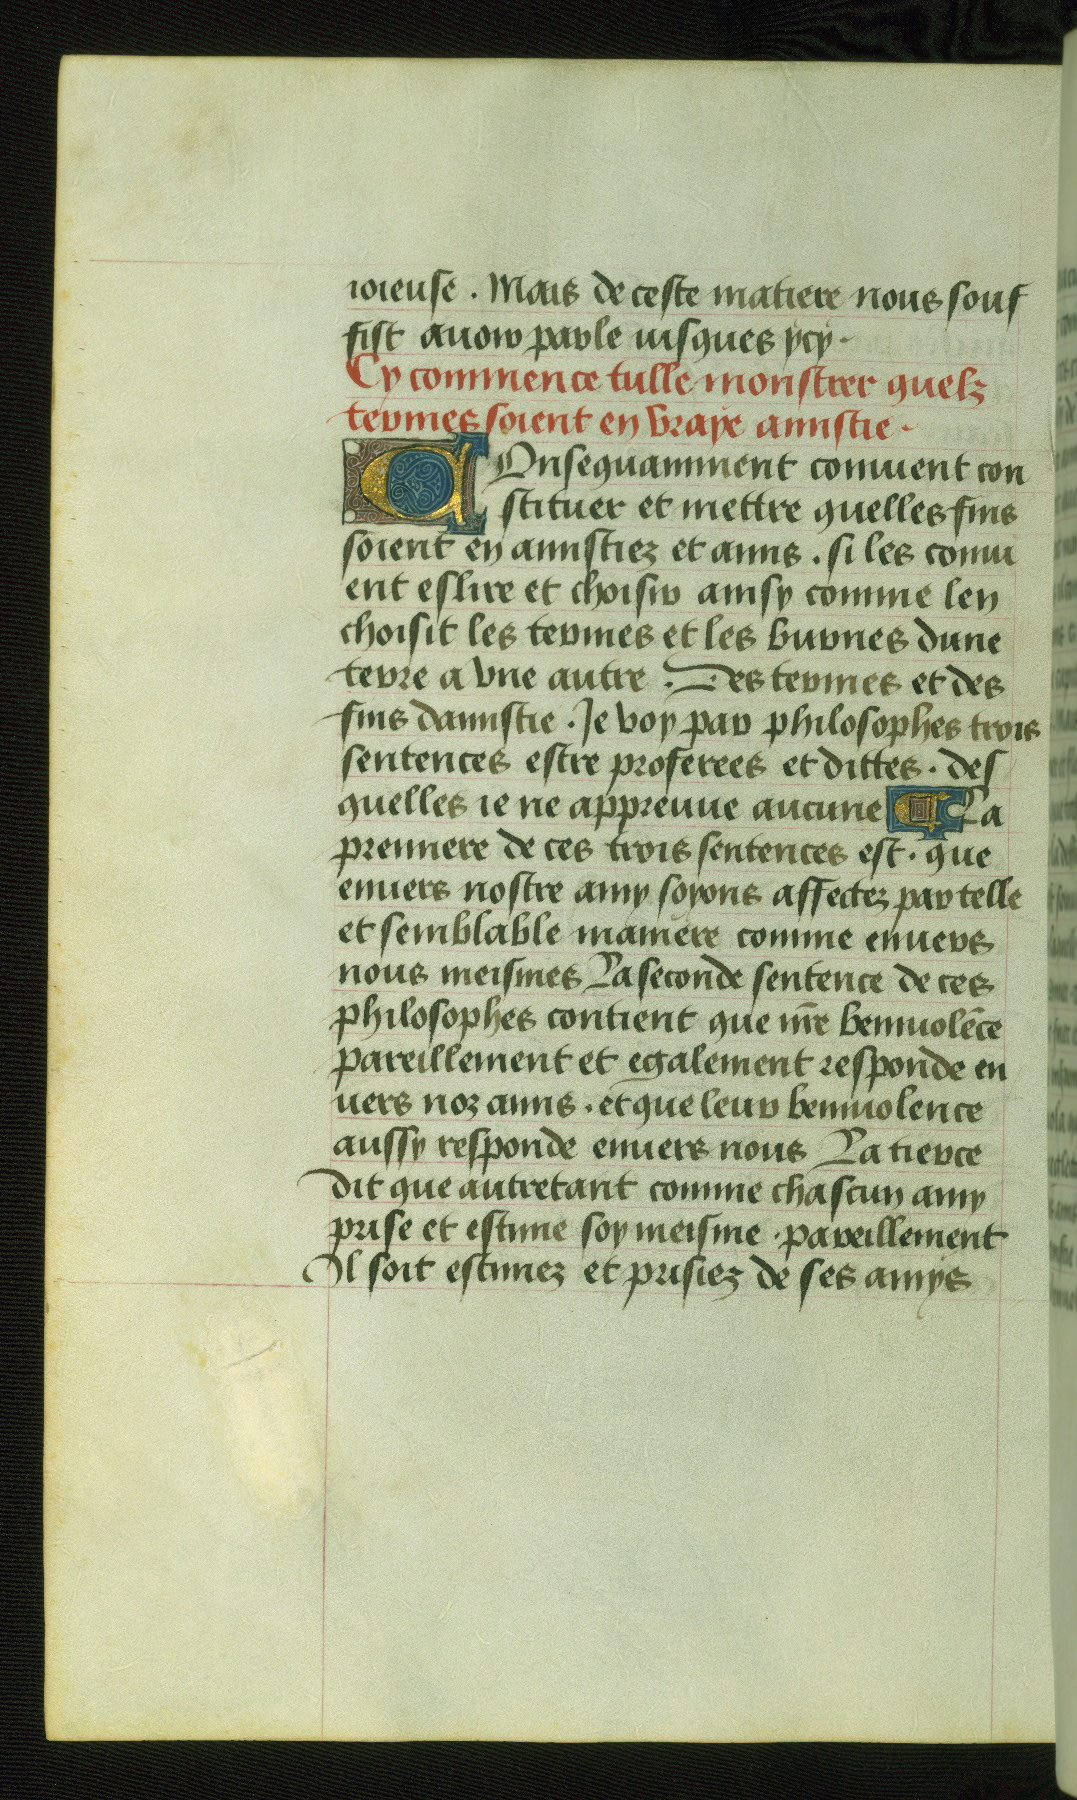 ioieuse . Mais de ceste matiere nous souf
fist auoir parle iusques ycy .
Cy commence tulle monstrer quelz
termes soient en vraye amistie .
COnsequamment conuient con
stituer et mettre quelles fins
soient en amistiez et amis . si les conui
ent eslire et choisir ainsy comme len
choisit les termes et les burnes dune
terre a vne autre . Des termes et des
fins damistie . Je voy par philosophes trois
sentences estre proferees et dittes . des
quelles ie ne appreuue aucune La
premiere de ces trois sentences est . que
enuers nostre amy soyons affectez par telle
et semblable maniere comme enuers
nous meismes La seconde sentence de ces
philosophes contient que nr̄e beniuolēce
pareillement et egalement responde en
uers noz amis . et que leur beniuolence
aussy responde enuers nous La tierce
dit que autretant comme chascun amy
prise et estime soy meisme . pareillement
Il soit estimez et prisiez de ses amys